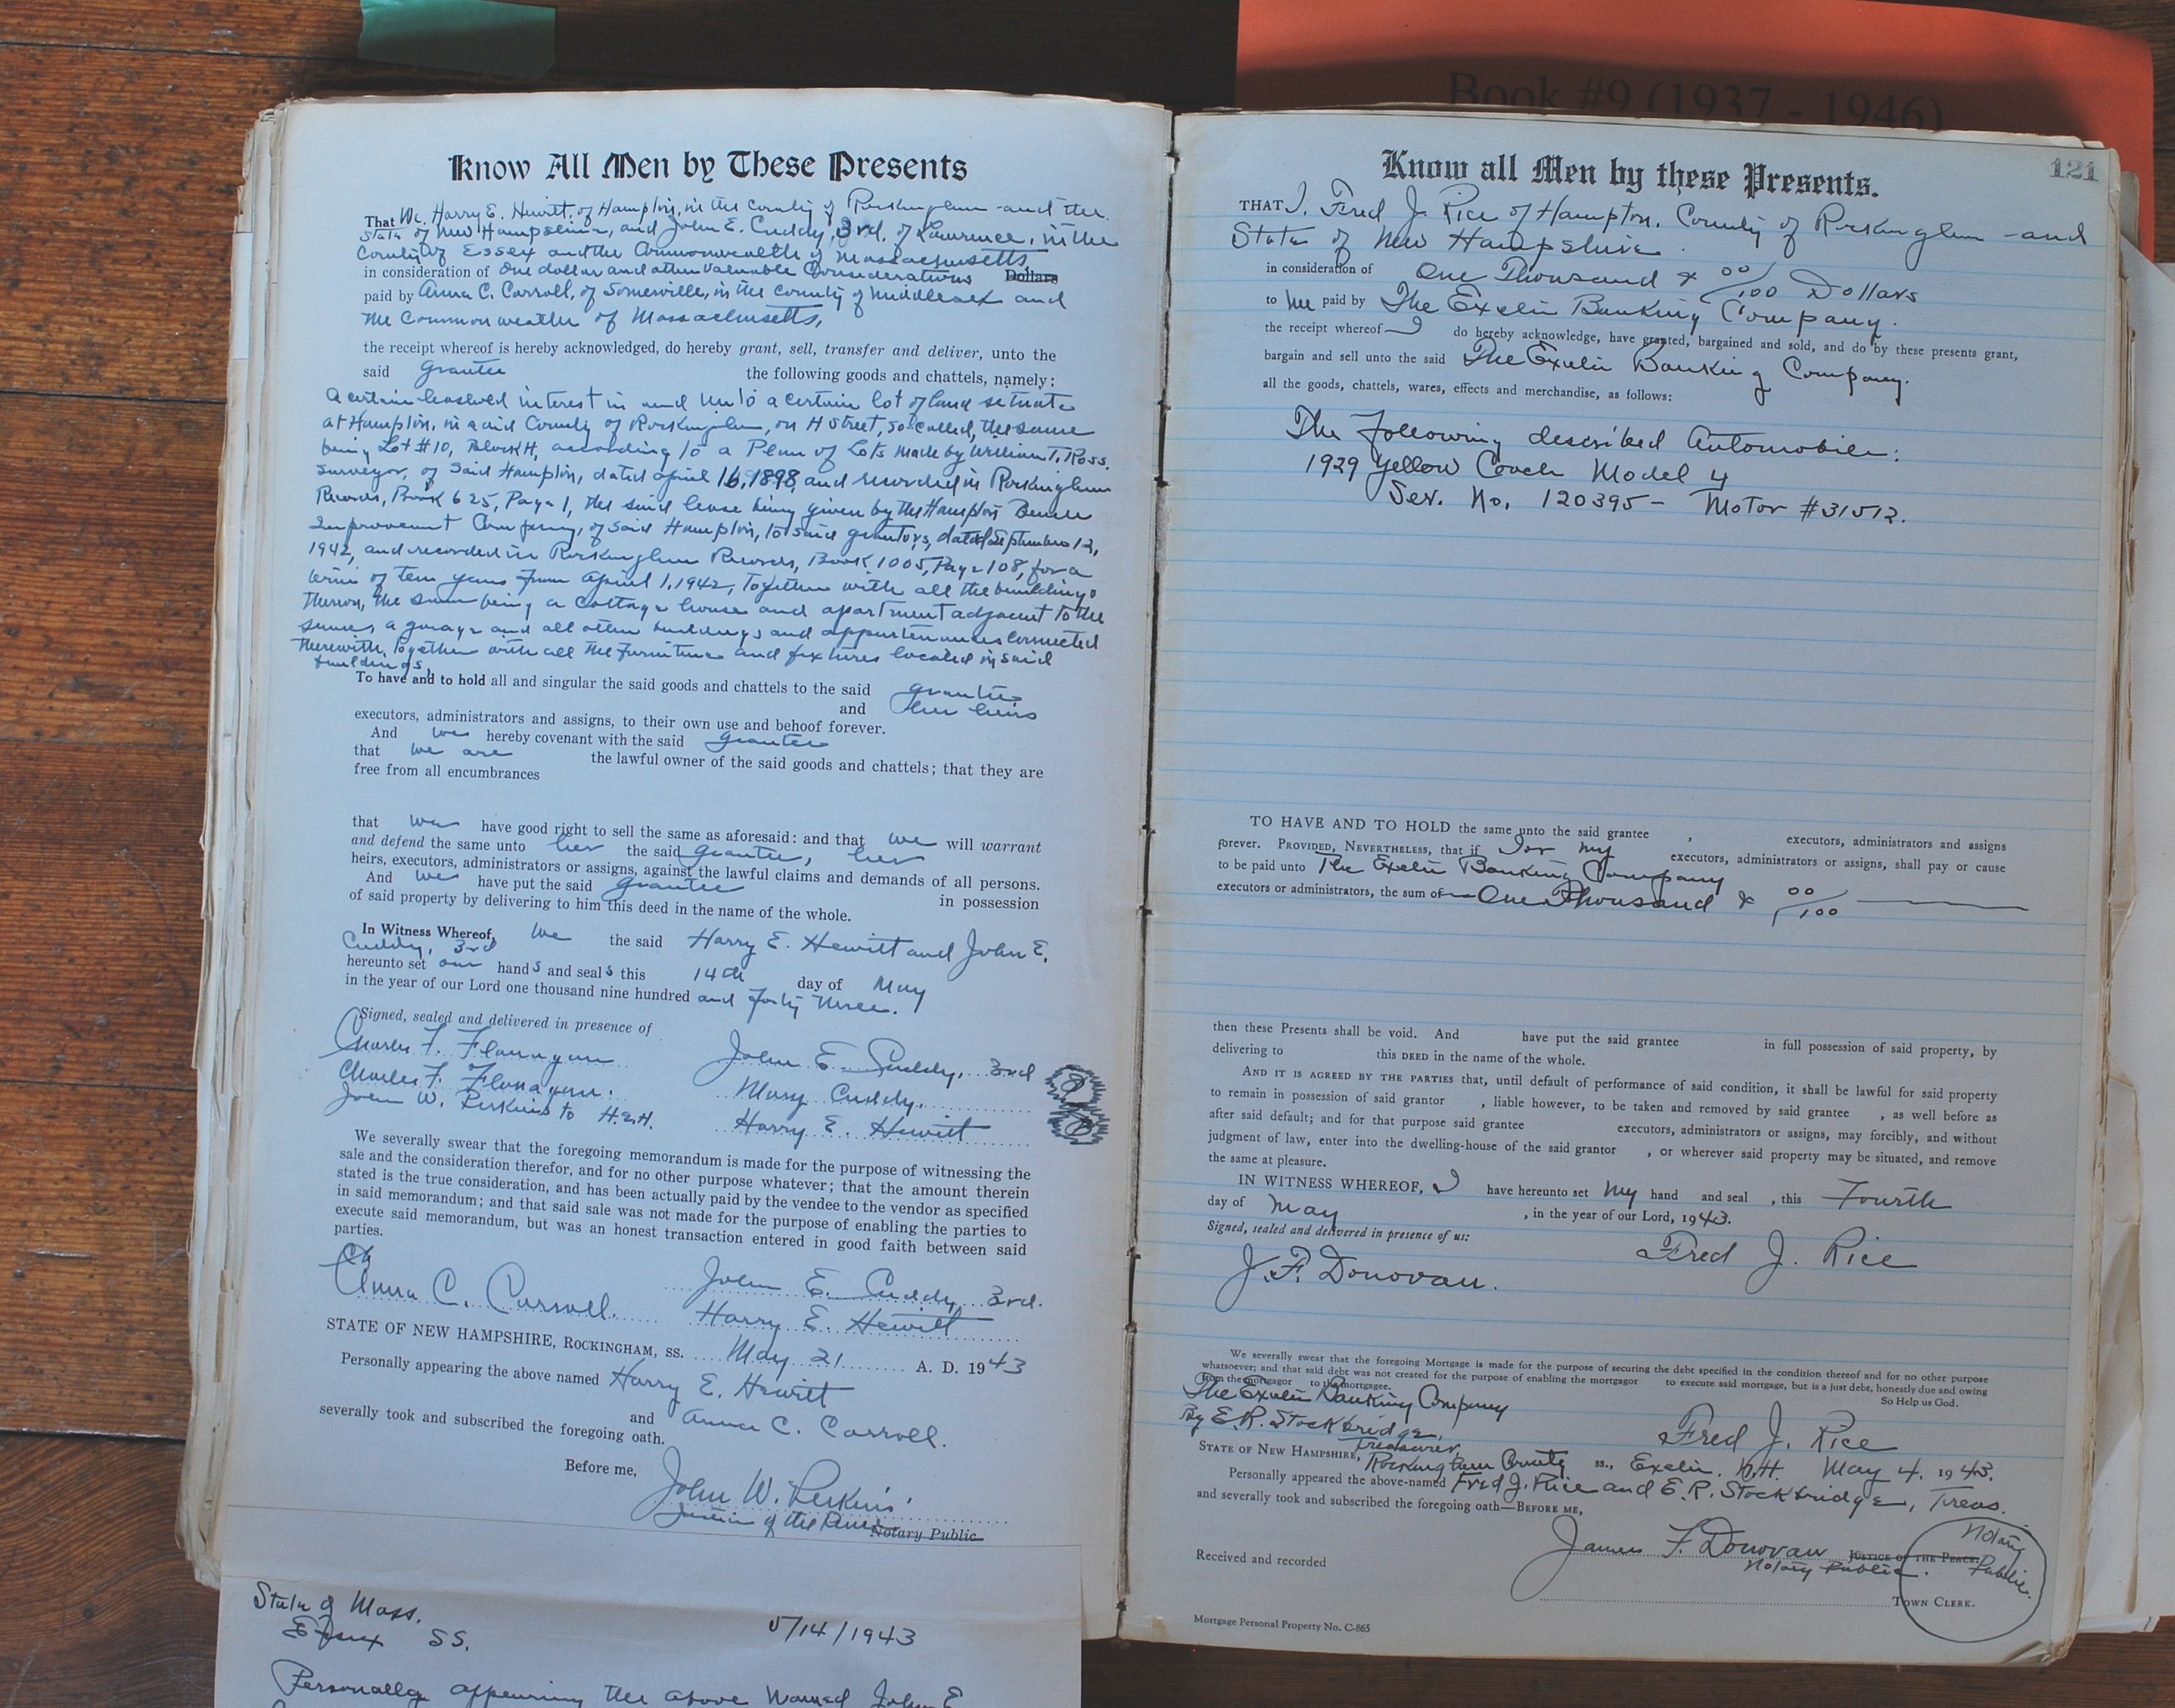 Book #9 (1937 - 1946)
Know All Men by These Presents
That We, Harry E. Hewitt, of Hampton, in the County of Rockingham and the
State of New Hampshire, and John E. Cuddy, 3rd, of Lawrence, in the
County of Essex and the Commonwealth of Massachusetts,
in consideration of One dollar and other valuable Considerations Dollars
paid by Anna C. Carroll, of Somerville, in the County of Middlesex and
the Commonwealth of Massachusetts,
the receipt whereof is hereby acknowledged, do hereby grant, sell, transfer and deliver, unto the
said grantee the following goods and chattels, namely;
A certain leasehold interest in and unto a certain lot of land situate
at Hampton, in said County of Rockingham, on H Street, so-called, the same
being Lot #10, Block H, according to a Plan of Lots made by William T. Ross,
surveyor, of said Hampton, dated April 16, 1898, and recorded in Rockingham
Records, Book 625, Page 1, the said lease being given by the Hampton Beach
Improvement Company, of said Hampton, to said grantors, dated September 12,
1942, and recorded in Rockingham Records, Book 1005, Page 108, for a
term of ten years from April 1, 1942, together with all the buildings
thereon, the same being a cottage house and apartment adjacent to the
same, a garage and all other buildings and appurtenances connected
therewith, together with all the furniture and fixtures located in said
buildings.
To have and to hold all and singular the said goods and chattels to the said grantee
and her heirs
executors, administrators and assigns, to their own use and behoof forever.
And we hereby covenant with the said grantee
that we are the lawful owner of the said goods and chattels; that they are
free from all encumbrances
that we have good right to sell the same as aforesaid: and that we will warrant
and defend the same unto her the said grantee, her
heirs, executors, administrators or assigns, against the lawful claims and demands of all persons.
And we have put the said grantee in possession
of said property by delivering to him this deed in the name of the whole.
In Witness Whereof, We the said Harry E. Hewitt and John E.
Cuddy, 3rd
hereunto set our hands and seals this 14th day of May
in the year of our Lord one thousand nine hundred and forty three.
Signed, sealed and delivered in presence of
Charles F. Flanagan John E. Cuddy, 3rd
Charles F. Flanagan. Mary Cuddy.
John W. Perkins to H.E.H. Harry E. Hewitt
We severally swear that the foregoing memorandum is made for the purpose of witnessing the
sale and the consideration therefor, and for no other purpose whatever; that the amount therein
stated is the true consideration, and has been actually paid by the vendee to the vendor as specified
in said memorandum; and that said sale was not made for the purpose of enabling the parties to
execute said memorandum, but was an honest transaction entered in good faith between said
parties.
Anna C. Carroll. John E. Cuddy, 3rd.
Harry E. Hewitt
STATE OF NEW HAMPSHIRE, ROCKINGHAM, SS. May 21 A. D. 1943
Personally appearing the above named Harry E. Hewitt
and Anna C. Carroll.
severally took and subscribed the foregoing oath.
Before me,
John W. Perkins
Justice of the Peace Notary Public
State of Mass.
Essex SS. 5/14/1943
Personally appearing the above named John E
121
Know all Men by these Presents.
THAT I, Fred J. Rice of Hampton, County of Rockingham and
State of New Hampshire.
in consideration of One Thousand & 00/100 Dollars
to me paid by The Exeter Banking Company.
the receipt whereof I do hereby acknowledge, have granted, bargained and sold, and do by these presents grant,
bargain and sell unto the said The Exeter Banking Company.
all the goods, chattels, wares, effects and merchandise, as follows:
The Following described Automobile:
1929 Yellow Coach Model 4
Ser. No. 120395 - Motor #31512.
TO HAVE AND TO HOLD the same unto the said grantee , executors, administrators and assigns
forever. PROVIDED, NEVERTHELESS, that if I or my executors, administrators or assigns, shall pay or cause
to be paid unto The Exeter Banking Company
executors or administrators, the sum of One Thousand & 00/100
then these Presents shall be void. And have put the said grantee in full possession of said property, by
delivering to this DEED in the name of the whole.
AND IT IS AGREED BY THE PARTIES that, until default of performance of said condition, it shall be lawful for said property
to remain in possession of said grantor , liable however, to be taken and removed by said grantee , as well before as
after said default; and for that purpose said grantee executors, administrators or assigns, may forcibly, and without
judgment of law, enter into the dwelling-house of the said grantor , or wherever said property may be situated, and remove
the same at pleasure.
IN WITNESS WHEREOF, I have hereunto set my hand and seal , this Fourth
day of May , in the year of our Lord, 1943.
Signed, sealed and delivered in presence of us:
Fred J. Rice
J. F. Donovan.
We severally swear that the foregoing Mortgage is made for the purpose of securing the debt specified in the condition thereof and for no other purpose
whatsoever; and that said debt was not created for the purpose of enabling the mortgagor to execute said mortgage, but is a just debt, honestly due and owing
from the mortgagor to the mortgagee. So Help us God.
The Exeter Banking Company
By E. R. Stockbridge, Fred J. Rice
Treasurer
STATE OF NEW HAMPSHIRE, Rockingham County ss., Exeter, N.H. May 4, 1943.
Personally appeared the above-named Fred J. Rice and E. R. Stockbridge, Treas.
and severally took and subscribed the foregoing oath—BEFORE ME,
James F. Donovan JUSTICE OF THE PEACE.
Notary Public.
Notary Public.
Received and recorded
TOWN CLERK.
Mortgage Personal Property No. C-865